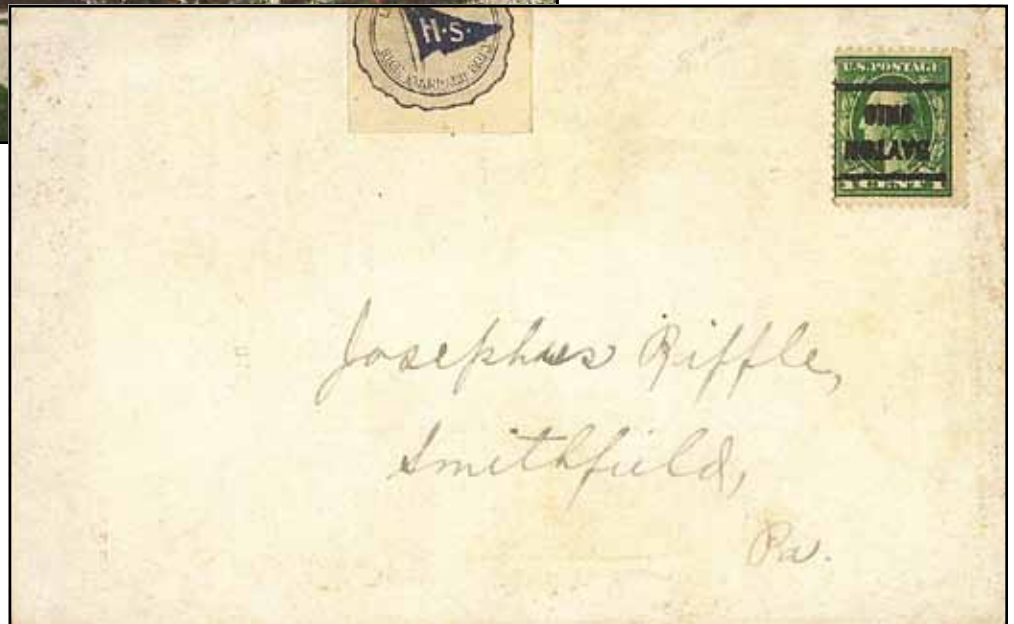 H·S·
U.S. POSTAGE
OIHO
DAYTON
1 CENT 1
Josephus Riffle,
Smithfield,
Pa.